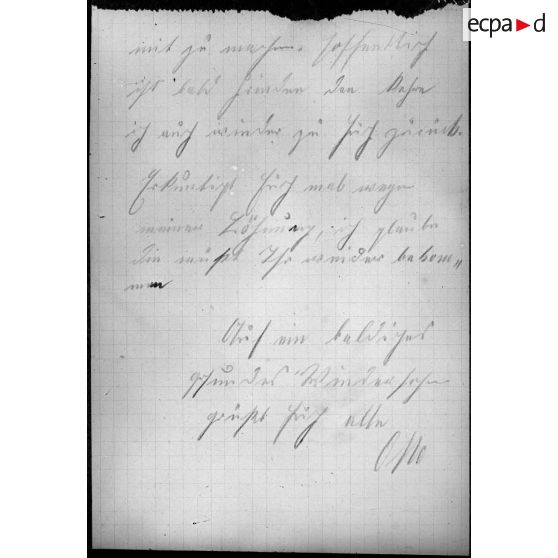 ecpad
mit zu machen. Hoffentlich
ist bald Frieden dan kehre
ich auch wieder zu Euch zurück.
Erkuntigt Euch mal wegen
meiner Löhnung, ich glaube
die müßt Ihr wieder bekom„
men
Auf ein baldiges
gesundes Wiedersehn
grüßt Euch alle
Otto